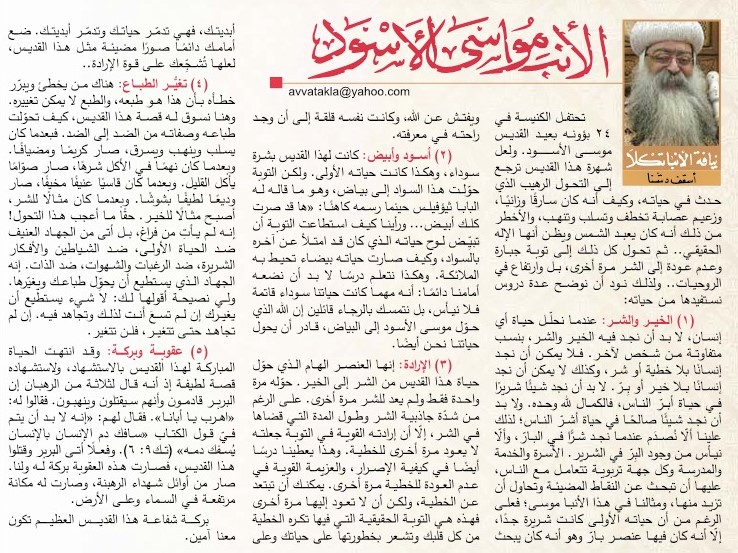 الأنبا موسى الأسود
avvatakla@yahoo.com
نيافة الأنبا تكلا
أسقف دشنا
تحتفل الكنيسة في
٢٤ بؤونه بعيد القديس
موسى الأســود. ولعل
شهرة هذا القديس ترجع
إلى التحول الرهيب الذي
حدث في حياته، وكيف أنه كان سارقًا وزانيًا،
وزعيم عصابة تخطف وتسلب وتنهب، والأخطر
من ذلك أنه كان يعبد الشمس ويظن أنها الإله
الحقيقي.. ثم تحول كل ذلك إلى توبة جبارة
وعدم عودة إلى الشر مرة أخرى، بل وارتفاع في
الروحيات.. ولذلك نود أن نوضح عدة دروس
نستفيدها من حياته:
(١) الخير والشر: عندما نحلّل حياة أي
إنسان، لا بد أن نجد فيه الخير والشر، بنسب
متفاوتة من شخص لآخر. فلا يمكن أن نجد
إنسانًا بلا خطية أو شر، وكذلك لا يمكن أن نجد
إنسانًا بلا خير أو بِرّ. لا بد أن نجد شيئًا شريرًا
في حياة أبرّ الناس، فالكمال لله وحده. ولا بد
أن نجد شيئًا صالحًا في حياة أشرّ الناس؛ لذلك
علينا ألّا نُصدَم عندما نجد شرًّا في البارّ، وألّا
نيأس من وجود البرّ في الشرير. الأسرة والخدمة
والمدرسة وكل جهة تربوية تتعامل مع الناس،
عليها أن تبحث عن النقاط المضيئة وتحاول أن
تزيد منها، ومثالنا في هذا الأنبا موسى؛ فعلى
الرغم من أن حياته الأولى كانت شريرة جدًا،
إلّا أنه كان فيها عنصر بارّ وهو أنه كان يبحث
ويفتش عن الله، وكانت نفسه قلقة إلى أن وجد
راحته في معرفته.
(٢) أسود وأبيض: كانت لهذا القديس بشرة
سوداء، وهكذا كانت حياته الأولى. ولكن التوبة
حوّلت هذا السواد إلى بياض، وهو ما قاله له
البابا ثيؤفيلس حينما رسمه كاهنًا: «ها قد صرت
كلك أبيض... ورأينا كيف استطاعت التوبة أن
تبيّض لوح حياته الذي كان قد امتلأ عن آخره
بالسواد، وكيف صارت حياته بيضاء تحيط به
الملائكة. وهكذا نتعلم درسًا لا بد أن نضعه
أمامنا دائمًا: أنه مهما كانت حياتنا سوداء قاتمة
فلا نيأس، بل نتمسك بالرجاء قائلين إن الله الذي
حوّل موسى الأسود إلى البياض، قادر أن يحول
حياتنا نحن أيضًا.
(٣) الإرادة: إنها العنصر الهام الذي حوّل
حياة هذا القديس من الشر إلى الخير. حوّله مرة
واحدة فقط ولم يعد للشر مرة أخرى. على الرغم
من شدّة جاذبية الشر وطول المدة التي قضاها
في الشر، إلّا أن إرادته القوية في التوبة جعلته
لا يعود مرة أخرى للخطية. وهذا يعطينا درسًا
أيضًا في كيفية الإصرار، والعزيمة القوية في
عدم العودة للخطية مرة أخرى. يمكنك أن تبتعد
عن الخطية، ولكن أن لا تعود إليها مرة أخرى
فهذه هي التوبة الحقيقية التي فيها تكره الخطية
من كل قلبك وتشعر بخطورتها على حياتك وعلى
أبديتك، فهي تدمّر حياتك وتدمّر أبديتك. ضع
أمامك دائمًا صورًا مضيئة مثل هذا القديس،
لعلها تُشجّعك على قوة الإرادة..
(٤) تغيُّر الطباع: هناك من يخطئ ويبرّر
خطأه بأن هذا هو طبعه، والطبع لا يمكن تغييره.
وهنا نسوق له قصة هذا القديس، كيف تحوّلت
طباعه وصفاته من الضد إلى الضد. فبعدما كان
يسلب وينهب ويسرق، صار كريمًا ومضيافًا.
وبعدما كان نهمًا في الأكل شرهًا، صار صوّامًا
يأكل القليل. وبعدما كان قاسيًا عنيفًا مخيفًا، صار
وديعًا لطيفًا بشوشًا. وبعدما كان مثالًا للشر،
أصبح مثالًا للخير. حقًا ما أعجب هذا التحول!
إنه لم يأتِ من فراغ، بل أتى من الجهاد العنيف
ضد الحياة الأولى، ضد الشياطين والأفكار
الشريرة، ضد الرغبات والشهوات، ضد الذات. إنه
الجهاد الذي يستطيع أن يحوّل طباعك ويغيّرها.
ولي نصيحة أقولها لك: لا شيء يستطيع أن
يغيرك إن لم تسعَ أنت لذلك وتجاهد فيه. إن لم
تجاهد حتى تتغير، فلن تتغير.
(٥) عقوبة وبركة: وقد انتهت الحياة
المباركة لهذا القديس بالاستشهاد، ولاستشهاده
قصة لطيفة إذ أنه قال لثلاثة من الرهبان إن
البربر قادمون وأنهم سيقتلون وينهبون. فقالوا له:
«اهرب يا أبانا». فقال لهم: «إنه لا بد أن يتم
فيّ قول الكتاب «سافك دم الإنسان بالإنسان
يُسفَك دمه» (تك٩: ٦). وفعلًا أتى البربر وقتلوا
هذا القديس، فصارت هذه العقوبة بركة له ولنا.
صار من أوائل شهداء الرهبنة، وصارت له مكانة
مرتفعة في السماء وعلى الأرض.
بركة شفاعة هذا القديس العظيم تكون
معنا آمين.